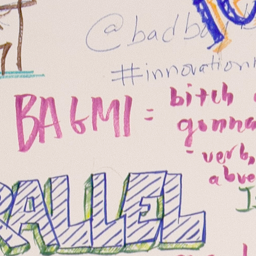 @badb
#innovation
BAGMI = bitch
gonna
- verb,
above
RALLEL